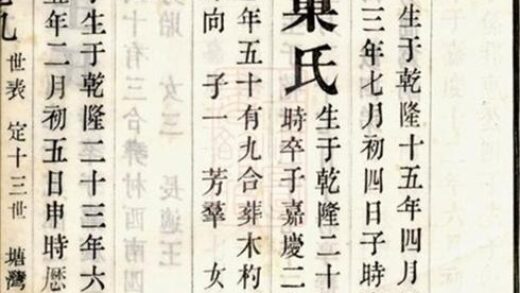 生于乾隆十五年四月
三年七月初四日子時
葉氏
生于乾隆二十
時卒于嘉慶二
年五十有九合葬木杓
向 子一 芳羣 女
生于乾隆二十三年六
五年二月初五日申時歷
世表 定十三世 塘灣